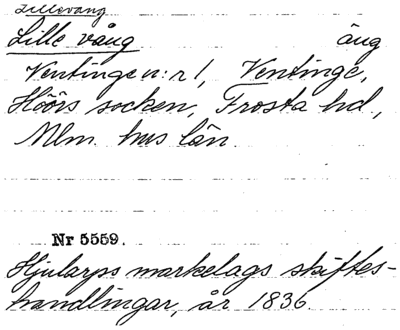 Lillevång
Lille vång äng
Ventinge n:r 1, Ventinge,
Höörs socken, Frosta hd.,
Mlm. hus län.
Nr 5559.
Hjularps markelags skiftes-
handlingar, år 1836.